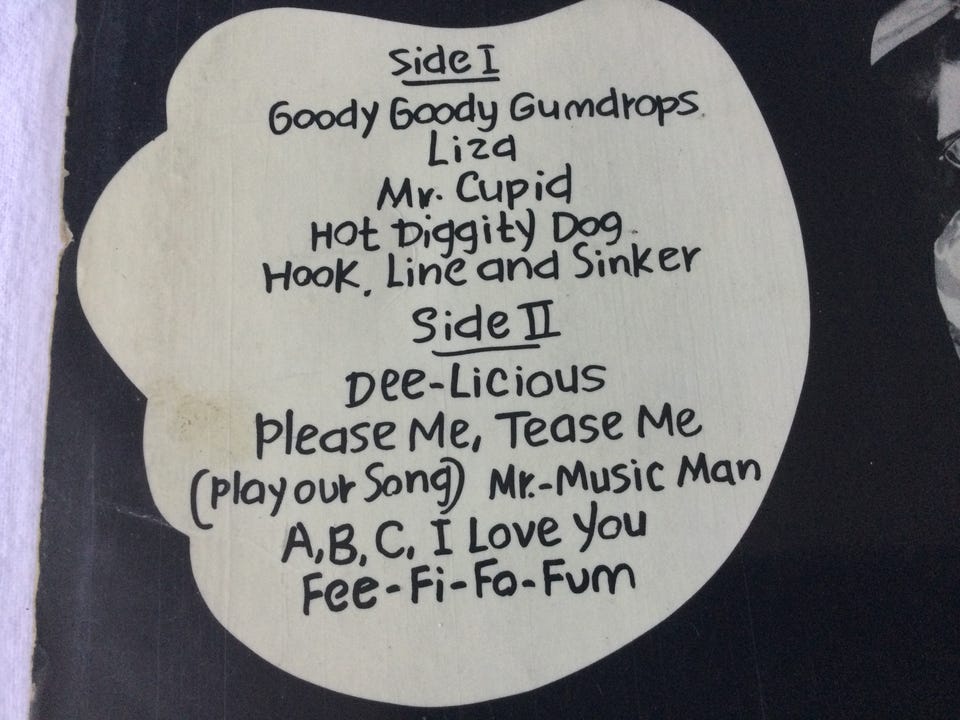 Side I
Goody Goody Gumdrops
Liza
Mr. Cupid
Hot Diggity Dog
Hook, Line and Sinker
Side II
Dee-Licious
Please Me, Tease Me
(Play our Song) Mr.-Music Man
A, B, C, I Love You
Fee-Fi-Fo-Fum